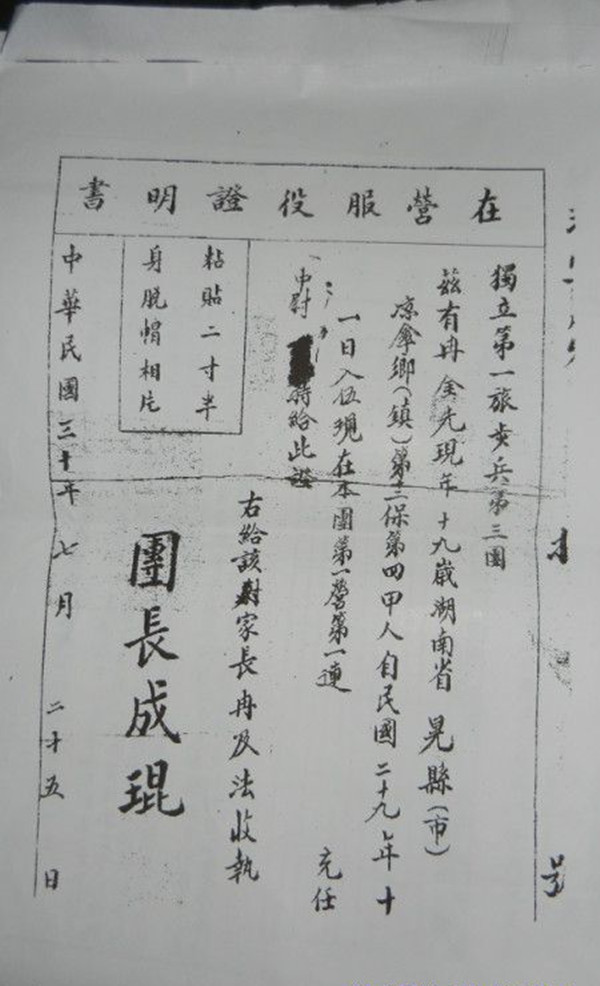 在營服役證明書
獨立第一旅步兵第三團
茲有冉金先現年十九歲湖南省晃縣(市)
凉傘鄉(鎮)第三保第四甲人自民國二十九年十
一日入伍現在本團第一營第一連
充任
中尉 特給此證
右給該尉家長冉及法收執
粘貼二寸半
身脫帽相片
團長成琨
中華民國三十年七月二十五日
號